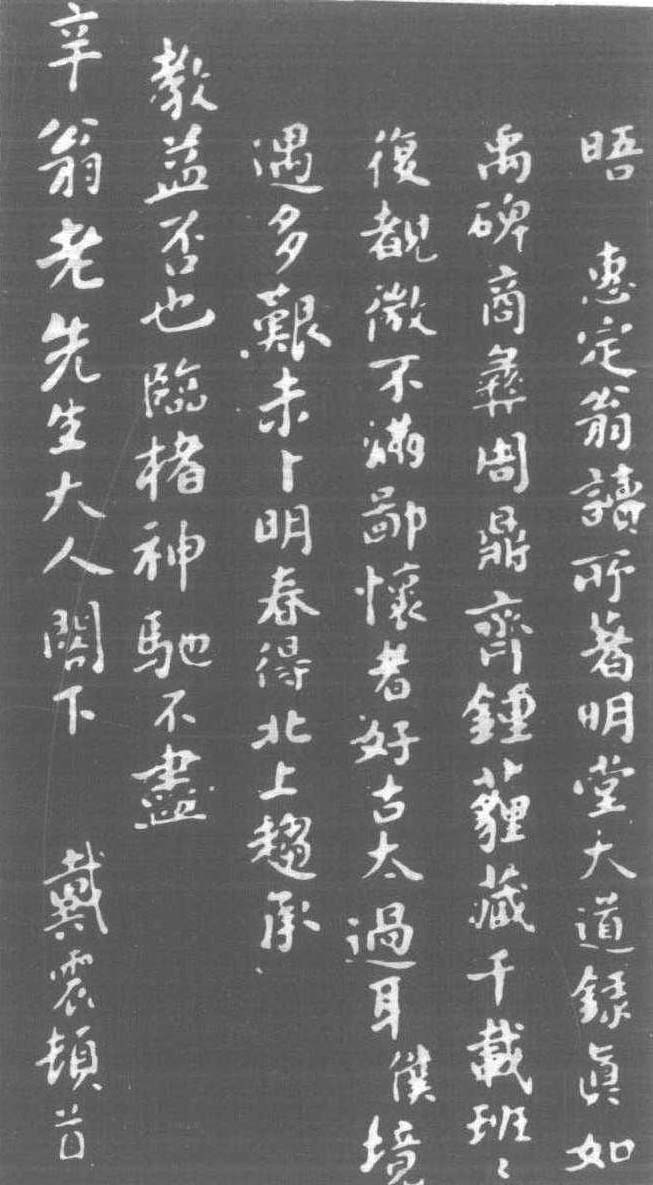 晤 惠定翁讀所著明堂大道録眞如
禹碑商彝周鼎齊鍾薶藏千載班〻
復覩微不滿鄙懷者好古太過耳僕境
遇多艱未卜明春得北上趨承
教益否也臨楮神馳不盡
辛翁老先生大人閣下 戴震頓首